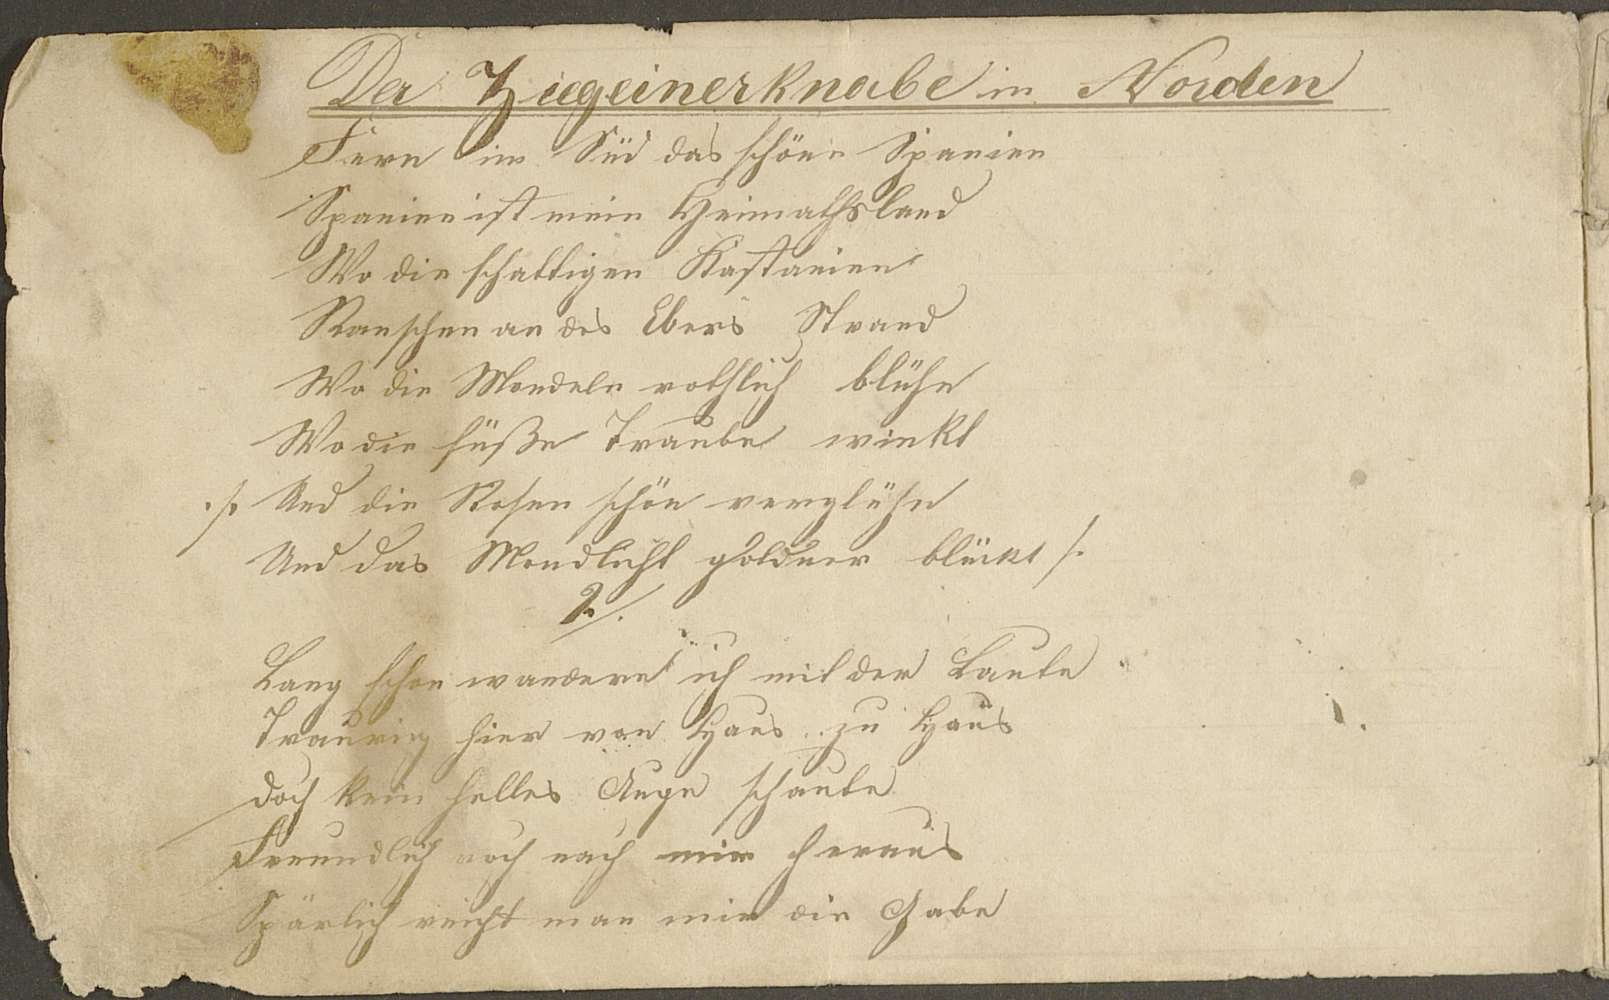 Der Ziegeinerknabe im Norden
Fern im Süd das schöne Spanien
Spanien ist mein Heimathsland
Wo die schattigen Kastanien
Rauschen an des Ebers Strand
Wo die Mandeln rothlich blühn
Wo die süße Traube winkt
./. Und die Rosen schön verglühn
Und das Mondlicht goldner blinkt /.
2/.
Lang schon wandere ich mit der Laute
Traurig hier von Haus zu Haus
doch kein helles Auge schaute
Freundlich noch nach mir heraus
Spärlich reicht man mir die Gabe